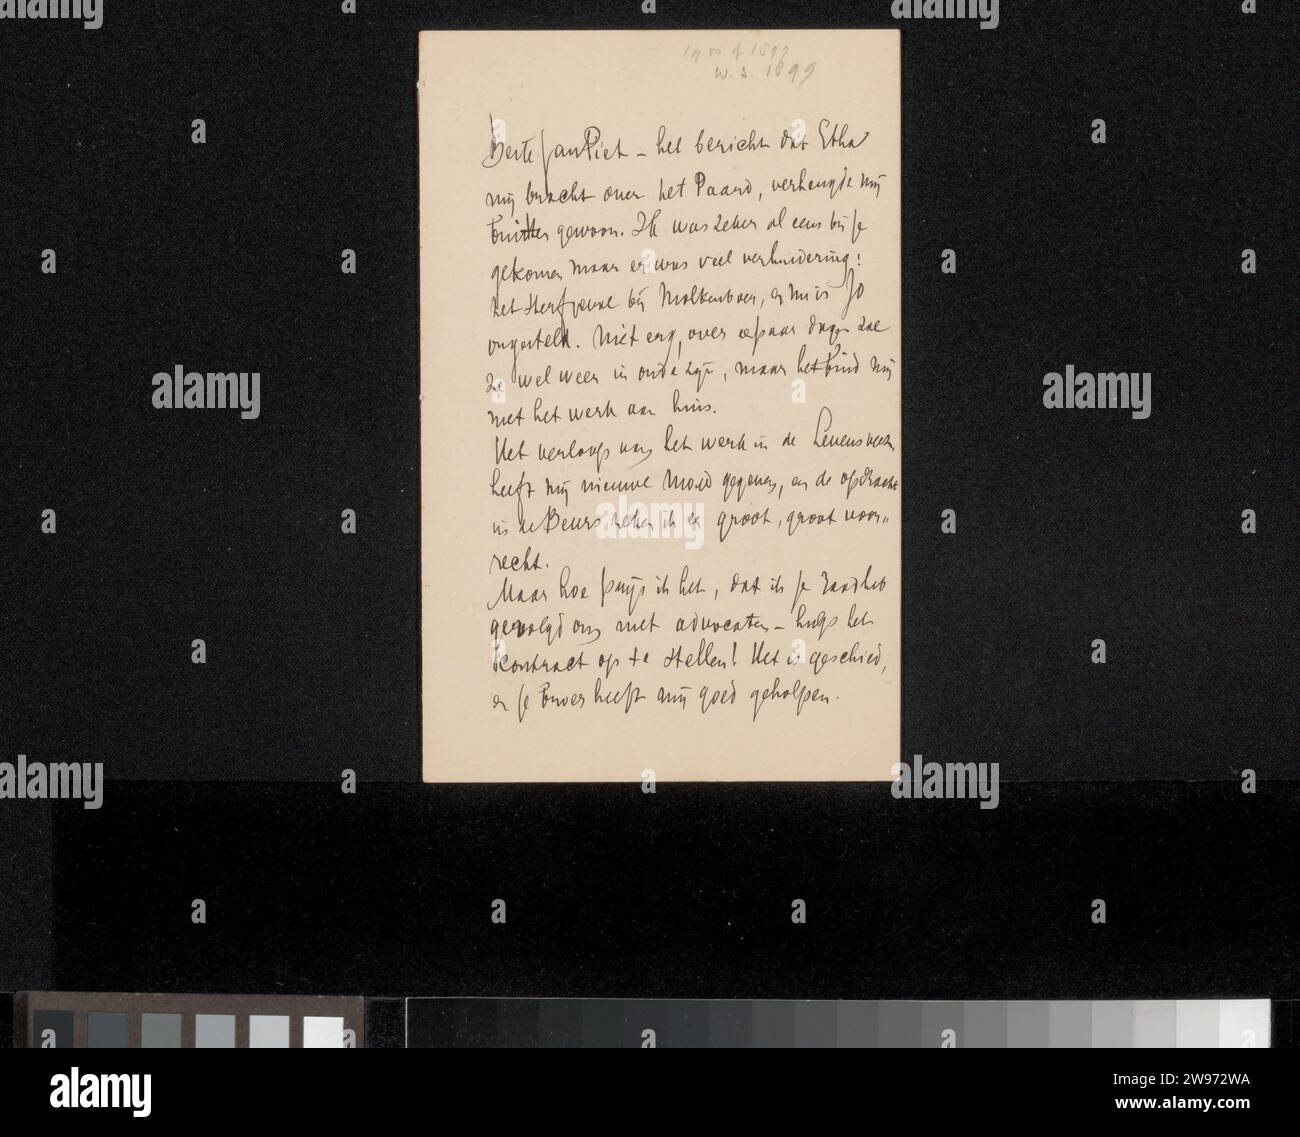 1900 of 1899
W.S. 1899
Beste Jan Piet – het bericht dat Etha
mij bracht over het Paard, verheugde mij
buiten gewoon. Ik was zeker al eens bij je
gekomen maar er was veel verhindering:
het Herfst bij Molkenboer, en nu is Jo
ongesteld. Niet erg, over een paar dagen zal
ze wel weer in orde zijn, maar het bind mij
met het werk aan huis.
Het verloop van het werk in de Levensverz.
heeft mij nieuwe moed gegeven, en de opdracht
in de Beurs reken ik een groot, groot voor„
recht.
Maar hoe prijs ik het, dat ik je raad heb
gevolgd om met advocaten – hulp het
Kontract op te stellen! Het is geschied,
en je broer heeft mij goed geholpen.
alamy
a
alamy
Image ID: 2W972WA
www.alamy.com